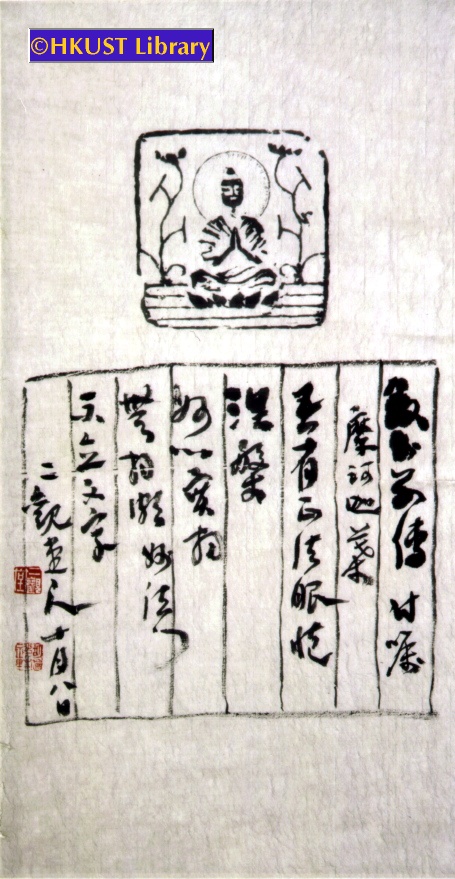 ©HKUST Library
教外別傳 付囑
摩訶迦葉
吾有正法眼藏
涅槃
妙心實相
無相微妙法門
不立文字
二觀 十月八日